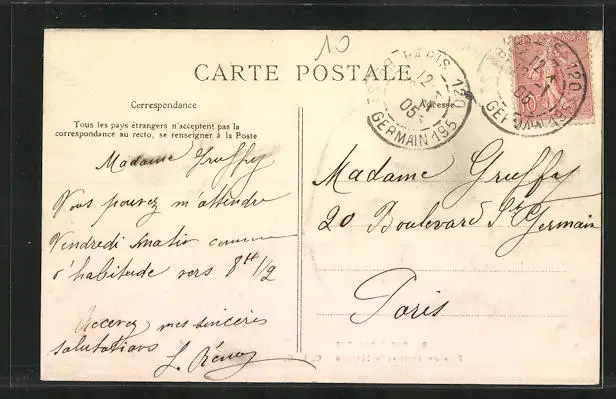 10
CARTE POSTALE
Correspondance
Adresse
Tous les pays étrangers n'acceptent pas la
correspondance au recto, se renseigner à la Poste
Madame Gruffy
Vous pouvez m'attendre
Vendredi matin comme
d'habitude vers 8H 1/2
Recevez mes sincères
salutations
Madame Gruffy
20 Boulevard St Germain
Paris
PARIS 120
12
05
GERMAIN 195
120
12
05